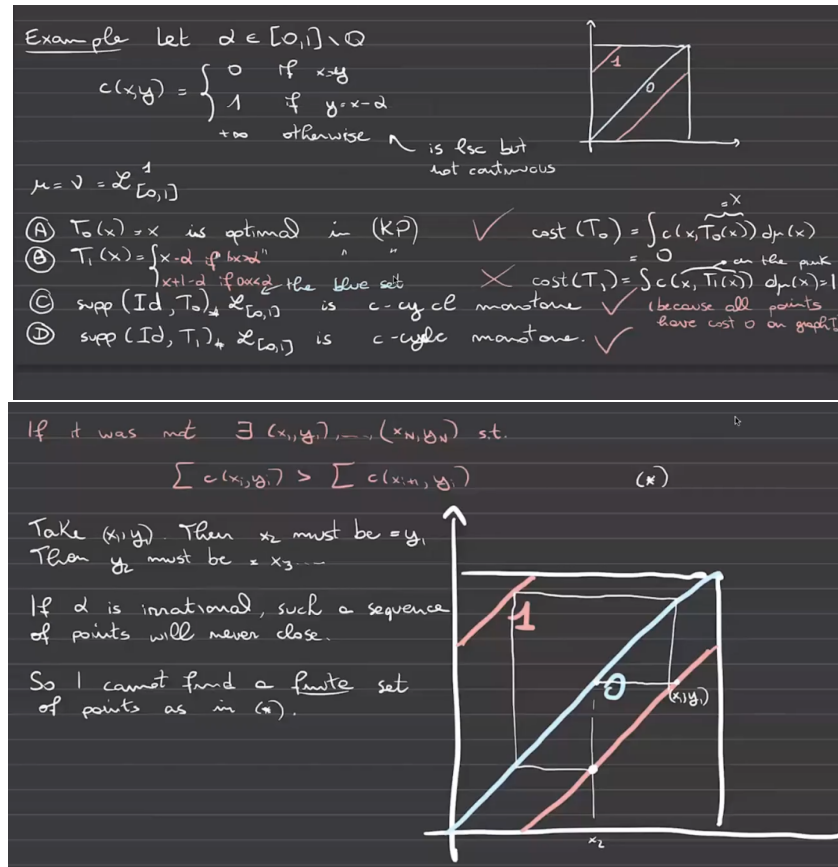 Example Let α ∈ [0,1] \ Q
c(x,y) = { 0 if x=y
1 if y=x-α
+∞ otherwise
is lsc but
not continuous
1
0
μ = ν = L¹[0,1]
Ⓐ T₀(x) = x is optimal in (KP) ✓ cost(T₀) = ∫ c(x,T₀(x)) dμ(x)
= x
= 0
Ⓑ T₁(x) = { x-α if 1>x>α " " "
x+1-α if 0<x<α the blue set ✗ cost(T₁) = ∫ c(x, T₁(x)) dμ(x) = 1
on the pink
Ⓒ supp (Id, T₀)* L[0,1] is c-cycl monotone ✓ (because all points
have cost 0 on graph T
Ⓓ supp (Id, T₁)* L[0,1] is c-cycle monotone. ✓
If it was not ∃ (x₁,y₁),..., (x_N,y_N) s.t.
∑ c(xᵢ,yᵢ) > ∑ c(xᵢ₊₁, yᵢ) (*)
Take (x₁,y₁). Then x₂ must be = y₁
Then y₂ must be = x₃ ...
If α is irrational, such a sequence
of points will never close.
So I cannot find a finite set
of points as in (*).
1
0
(x₁,y₁)
x₂